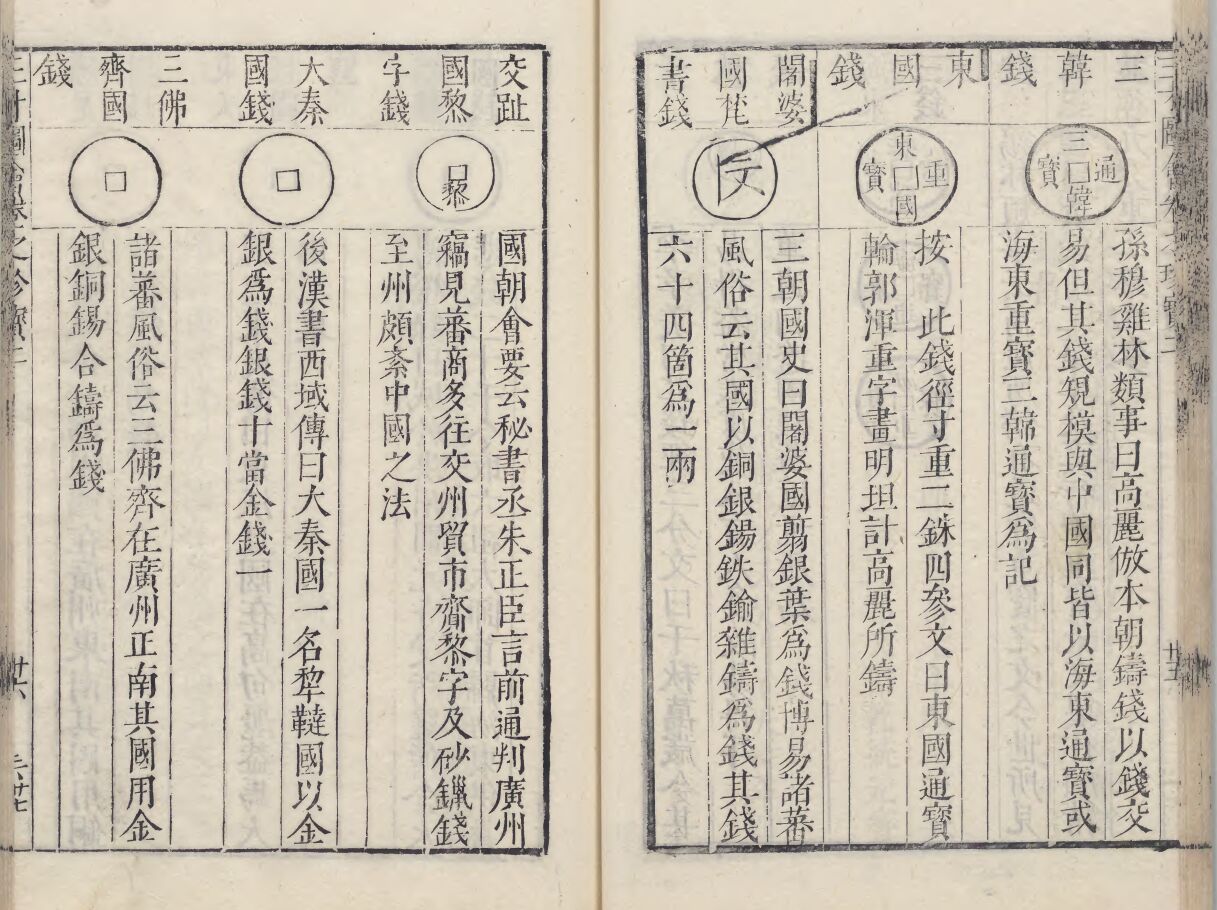 三韓錢
三韓通寶
孫穆雞林類事曰高麗倣本朝鑄錢以錢交
易但其錢䂓模與中國同皆以海東通寶或
海東重寶三韓通寶爲記
東國錢
東國重寶
按此錢徑寸重二銖四參文曰東國通寶
輪郭渾重字畫明坦計高麗所鑄
闍婆國梵書錢
三朝國史曰闍婆國剪銀葉爲錢博易諸蕃
風俗云其國以銅銀鍚鉄鍮雜鑄爲錢其錢
六十四箇爲一兩
廿五
交趾國黎字錢
黎
國朝會要云秘書丞朱正臣言前通判廣州
竊見蕃商多往交州貿市齎黎字及砂鑞錢
至州頗紊中國之法
大秦國錢
後漢書西域傳曰大秦國一名犂鞬國以金
銀爲錢銀錢十當金錢一
三佛齊國錢
諸蕃風俗云三佛齊在廣州正南其國用金
銀銅錫合鑄爲錢
廿六